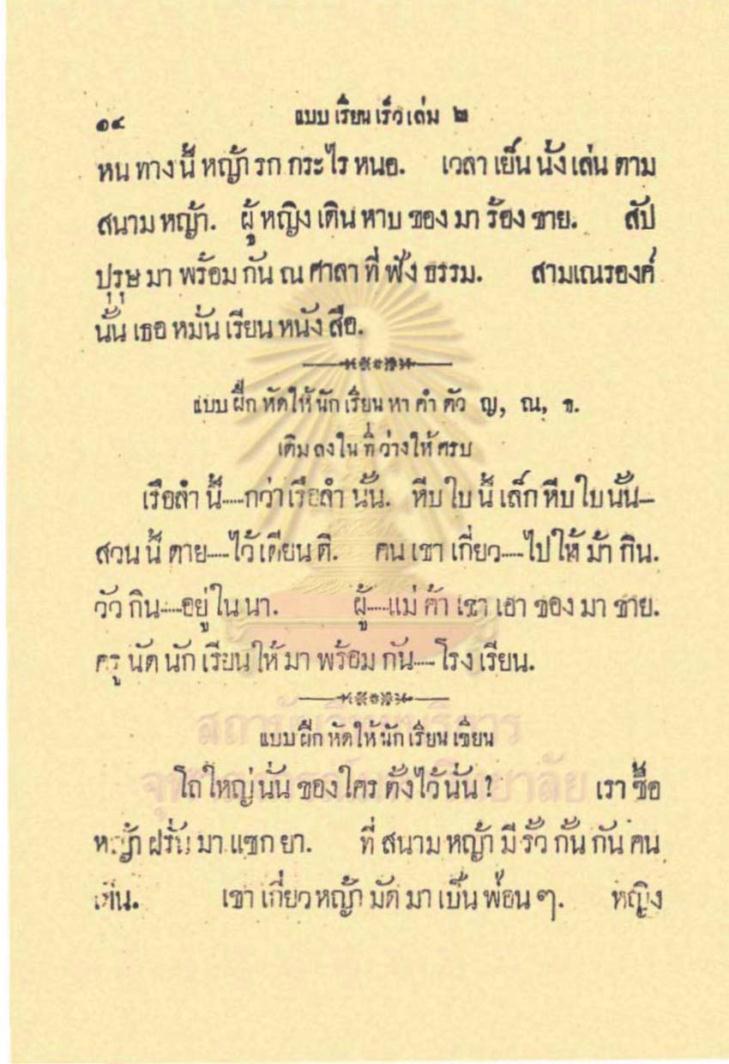 ๑๔ แบบ เรียน เร็ว เล่ม ๒
หน ทาง นี้ หญ้า รก กระ ไร หนอ. เวลา เย็น นั่ง เล่น ตาม
สนาม หญ้า. ผู้ หญิง เดิน หาบ ของ มา ร้อง ขาย. สัป
ปุรุษ มา พร้อม กัน ณ ศาลา ที่ ฟัง ธรรม. สามเณรองค์
นั้น เธอ หมั่น เรียน หนัง สือ.
แบบ ฝึก หัด ให้ นัก เรียน หา คำ ตัว ญ, ณ, ข.
เติม ลง ใน ที่ ว่าง ให้ ครบ
เรือลำ นี้—กว่า เรือลำ นั้น. หีบ ใบ นี้ เล็ก หีบ ใบ นั้น—
สวน นี้ ดาย—ไว้ เตียน ดี. คน เขา เกี่ยว—ไป ให้ ม้า กิน.
วัว กิน—อยู่ ใน นา. ผู้—แม่ ค้า เขา เอา ของ มา ขาย.
ครู นัด นัก เรียน ให้ มา พร้อม กัน—โรง เรียน.
แบบ ฝึก หัด ให้ นัก เรียน เขียน
โถ ใหญ่ นั่น ของ ใคร ตั้ง ไว้ นั่น ? เรา ซื้อ
หญ้า ฝรั่น มา แซก ยา. ที่ สนาม หญ้า มี รั้ว กั้น กัน คน
เดิน. เขา เกี่ยว หญ้า มัด มา เป็น ฟ่อน ๆ. หญิง
สถาบันวิทยบริการ
จุฬาลงกรณ์มหาวิทยาลัย